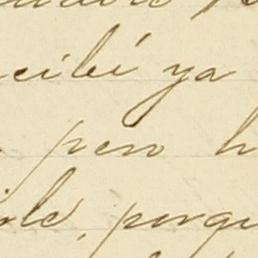 cibí ya
pero h
ble, porqu